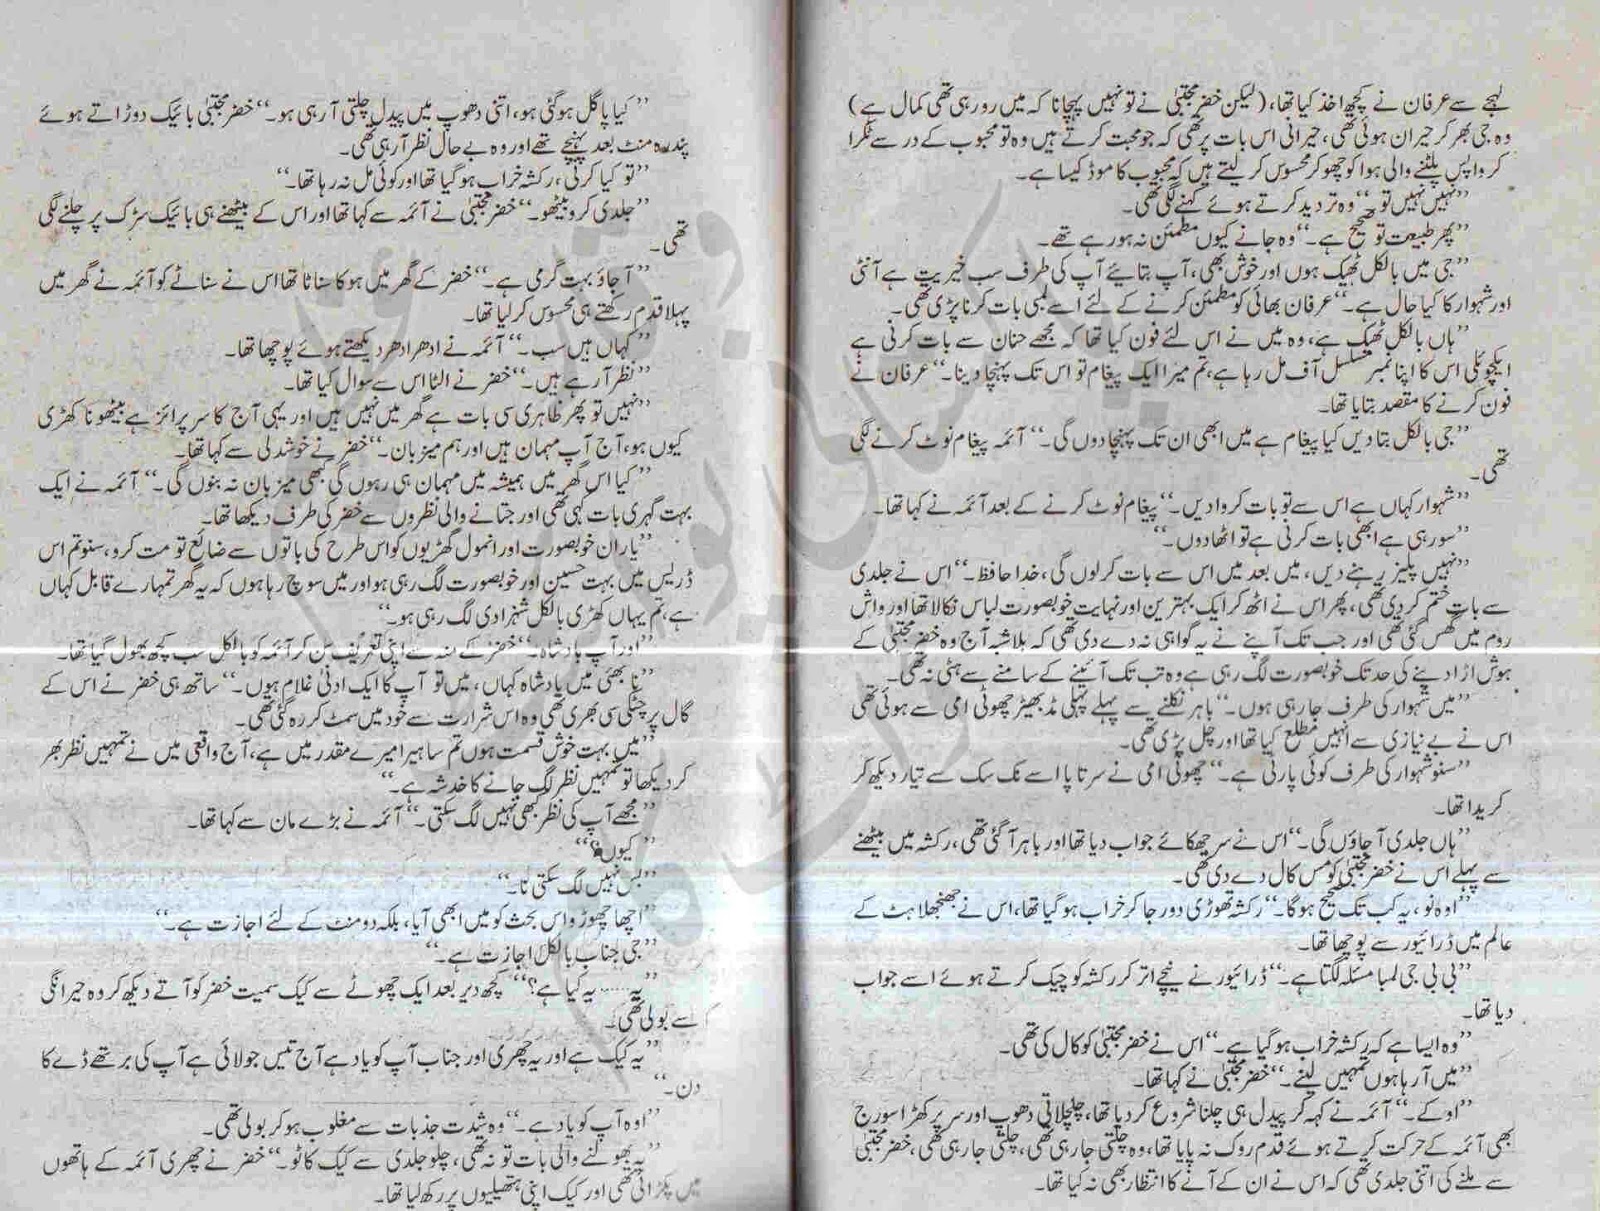 لہجے سے عرفان نے کچھ اخذ کیا تھا، (لیکن خضر مجتبیٰ نے تو نہیں پہچانا کہ میں رو رہی تھی کمال ہے)
وہ جی بھر کر حیران ہوئی تھی، حیرانی اس بات پر تھی کہ جو محبت کرتے ہیں وہ تو محبوب کے در سے ٹکرا
کر واپس پلٹنے والی ہوا کو چھو کر محسوس کر لیتے ہیں کہ محبوب کا موڈ کیسا ہے۔
”نہیں نہیں تو۔“ وہ تردید کرتے ہوئے کہنے لگی تھی۔
”پھر طبیعت تو صحیح ہے۔“ وہ جانے کیوں مطمئن نہ ہو رہے تھے۔
”جی میں بالکل ٹھیک ہوں اور خوش بھی، آپ بتائیے آپ کی طرف سب خیریت ہے آنٹی
اور شہوار کا کیا حال ہے۔“ عرفان بھائی کو مطمئن کرنے کے لئے اسے لمبی بات کرنا پڑی تھی۔
”ہاں بالکل ٹھیک ہے، وہ میں نے اس لئے فون کیا تھا کہ مجھے حنان سے بات کرنی ہے
ایکچوئلی اس کا اپنا نمبر مسلسل آف مل رہا ہے، تم میرا ایک پیغام تو اس تک پہنچا دینا۔“ عرفان نے
فون کرنے کا مقصد بتایا تھا۔
”جی بالکل بتا دیں کیا پیغام ہے میں ابھی ان تک پہنچا دوں گی۔“ آئمہ پیغام نوٹ کرنے لگی
تھی۔
”شہوار کہاں ہے اس سے تو بات کروا دیں۔“ پیغام نوٹ کرنے کے بعد آئمہ نے کہا تھا۔
”سو رہی ہے ابھی بات کرنی ہے تو اٹھا دوں۔“
”نہیں پلیز رہنے دیں، میں بعد میں اس سے بات کر لوں گی، خدا حافظ۔“ اس نے جلدی
سے بات ختم کر دی تھی، پھر اس نے اٹھ کر ایک بہترین اور نہایت خوبصورت لباس نکالا تھا اور واش
روم میں گھس گئی تھی اور جب تک آئینے نے یہ گواہی نہ دے دی تھی کہ بلاشبہ آج وہ خضر مجتبیٰ کے
ہوش اڑا دینے کی حد تک خوبصورت لگ رہی ہے وہ تب تک آئینے کے سامنے سے ہٹی نہ تھی۔
”میں شہوار کی طرف جا رہی ہوں۔“ باہر نکلنے سے پہلے پہلی مڈبھیڑ چھوٹی امی سے ہوئی تھی
اس نے بے نیازی سے انہیں مطلع کیا تھا اور چل پڑی تھی۔
”سنو شہوار کی طرف کوئی پارٹی ہے۔“ چھوٹی امی نے سرتاپا اسے نک سک سے تیار دیکھ کر
کریدا تھا۔
”ہاں جلدی آ جاؤں گی۔“ اس نے سر جھکائے جواب دیا تھا اور باہر آ گئی تھی، رکشہ میں بیٹھنے
سے پہلے اس نے خضر مجتبیٰ کو مس کال دے دی تھی۔
”اوہ نو، یہ کب تک صحیح ہو گا۔“ رکشہ تھوڑی دور جا کر خراب ہو گیا تھا، اس نے جھنجھلاہٹ کے
عالم میں ڈرائیور سے پوچھا تھا۔
”بی بی جی لمبا مسئلہ لگتا ہے۔“ ڈرائیور نے نیچے اتر کر رکشہ کو چیک کرتے ہوئے اسے جواب
دیا تھا۔
”وہ ایسا ہے کہ رکشہ خراب ہو گیا ہے۔“ اس نے خضر مجتبیٰ کو کال کی تھی۔
”میں آ رہا ہوں تمہیں لینے۔“ خضر مجتبیٰ نے کہا تھا۔
”اوکے۔“ آئمہ نے کہہ کر پیدل ہی چلنا شروع کر دیا تھا، چلچلاتی دھوپ اور سر پر کھڑا سورج
بھی آئمہ کے حرکت کرتے ہوئے قدم روک نہ پایا تھا، وہ چلتی جا رہی تھی، چلتی جا رہی تھی، خضر مجتبیٰ
سے ملنے کی اتنی جلدی تھی کہ اس نے ان کے آنے کا انتظار بھی نہ کیا تھا۔
”کیا پاگل ہو گئی ہو، اتنی دھوپ میں پیدل چلتی آ رہی ہو۔“ خضر مجتبیٰ بائیک دوڑاتے ہوئے
پندرہ منٹ بعد پہنچے تھے اور وہ بے حال نظر آ رہی تھی۔
”تو کیا کرتی، رکشہ خراب ہو گیا تھا اور کوئی مل نہ رہا تھا۔“
”جلدی کرو بیٹھو۔“ خضر مجتبیٰ نے آئمہ سے کہا تھا اور اس کے بیٹھتے ہی بائیک سڑک پر چلنے لگی
تھی۔
”آ جاؤ بہت گرمی ہے۔“ خضر کے گھر میں ہو کا سناٹا تھا اس نے سناٹے کو آئمہ نے گھر میں
پہلا قدم رکھتے ہی محسوس کر لیا تھا۔
”کہاں ہیں سب۔“ آئمہ نے ادھر ادھر دیکھتے ہوئے پوچھا تھا۔
”نظر آ رہے ہیں۔“ خضر نے الٹا اس سے سوال کیا تھا۔
”نہیں تو پھر ظاہری سی بات ہے گھر میں نہیں ہیں اور یہی آج کا سرپرائز ہے بیٹھو نا کھڑی
کیوں ہو، آج آپ مہمان ہیں اور ہم میزبان۔“ خضر نے خوشدلی سے کہا تھا۔
”کیا اس گھر میں ہمیشہ میں مہمان ہی رہوں گی کبھی میزبان نہ بنوں گی۔“ آئمہ نے ایک
بہت گہری بات کہی تھی اور جتانے والی نظروں سے خضر کی طرف دیکھا تھا۔
”یار ان خوبصورت اور انمول گھڑیوں کو اس طرح کی باتوں سے ضائع تو مت کرو، سنو تم اس
ڈریس میں بہت حسین اور خوبصورت لگ رہی ہو اور میں سوچ رہا ہوں کہ یہ گھر تمہارے قابل کہاں
ہے، تم یہاں کھڑی بالکل شہزادی لگ رہی ہو۔“
”اور آپ بادشاہ۔“ خضر کے منہ سے اپنی تعریف سن کر آئمہ کو بالکل سب کچھ بھول گیا تھا۔
”نا بھئی میں بادشاہ کہاں، میں تو آپ کا ایک ادنیٰ غلام ہوں۔“ ساتھ ہی خضر نے اس کے
گال پر چٹکی سی بھری تھی وہ اس شرارت سے خود میں سمٹ کر رہ گئی تھی۔
”میں بہت خوش قسمت ہوں تم سا ہیرا میرے مقدر میں ہے، آج واقعی میں نے تمہیں نظر بھر
کر دیکھا تو تمہیں نظر لگ جانے کا خدشہ ہے۔“
”مجھے آپ کی نظر کبھی نہیں لگ سکتی۔“ آئمہ نے بڑے مان سے کہا تھا۔
”کیوں؟“
”بس نہیں لگ سکتی نا۔“
”اچھا چھوڑو اس بحث کو میں ابھی آیا، بلکہ دو منٹ کے لئے اجازت ہے۔“
”جی جناب بالکل اجازت ہے۔“
”یہ..... یہ کیا ہے؟“ کچھ دیر بعد ایک چھوٹے سے کیک سمیت خضر کو آتے دیکھ کر وہ حیرانگی
سے بولی تھی۔
”یہ کیک ہے اور یہ چھری اور جناب آپ کو یاد ہے آج تیس جولائی ہے آپ کی برتھ ڈے کا
دن۔“
”اوہ آپ کو یاد ہے۔“ وہ شدت جذبات سے مغلوب ہو کر بولی تھی۔
”یہ بھولنے والی بات تو نہ تھی، چلو جلدی سے کیک کاٹو۔“ خضر نے چھری آئمہ کے ہاتھوں
میں پکڑائی تھی اور کیک اپنی ہتھیلیوں پر رکھ لیا تھا۔